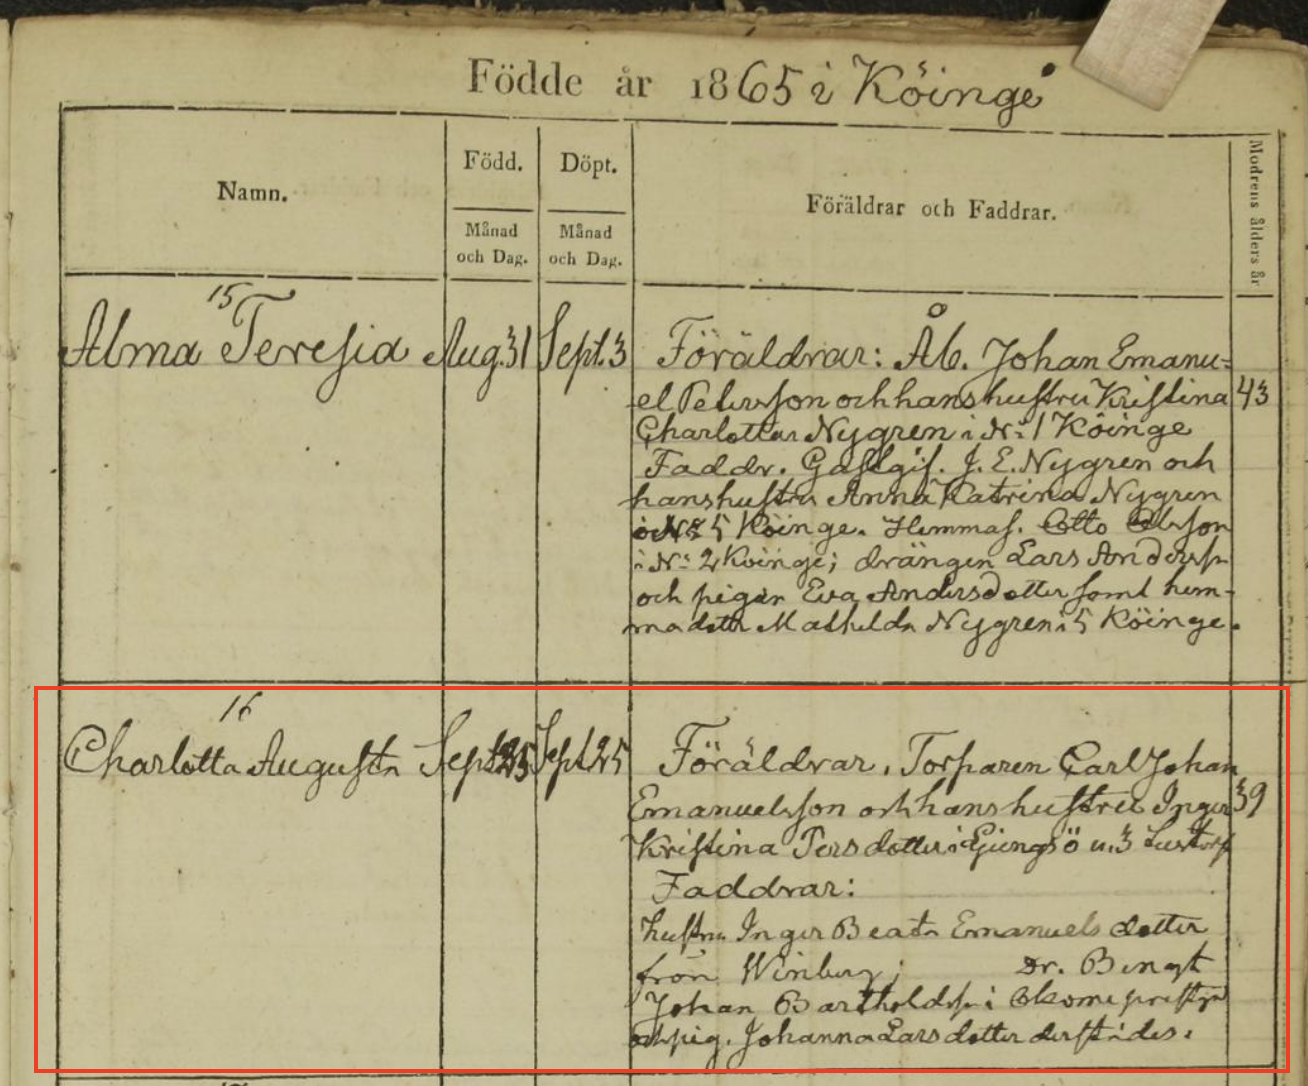 Födde år 1865 i Köinge
Namn.
Född.
Månad
och Dag.
Döpt.
Månad
och Dag.
Föräldrar och Faddrar.
Modrens ålders år
15
Alma Teresia Aug. 31 Sept. 3 Föräldrar: Åb. Johan Emanu-
el Petersson och hans hustru Kristina 43
Charlotta Nygren i N: 1 Köinge
Faddr. Gästgif. J. E. Nygren och
hans hustru Anna Katrina Nygren
5 Köinge. Hemmaf. Otto
i N: 2 Köinge; drängen Lars Anderss.
och pigan Eva Andersdotter samt hem-
madottr Mathilda Nygren i 5 Köinge.
16
Charlotta Augusta Sept. Sept. 25 Föräldrar. Torparen Carl Johan
Emanuelsson och hans hustru Inger 39
Kristina Persdotter i u. 3
Faddrar:
hustru Inger Beata Emanuelsdotter
från Winberg; Dr. Bengt
Johan Bartholdss. i Okome
och pig. Johanna Larsdotter derstädes.